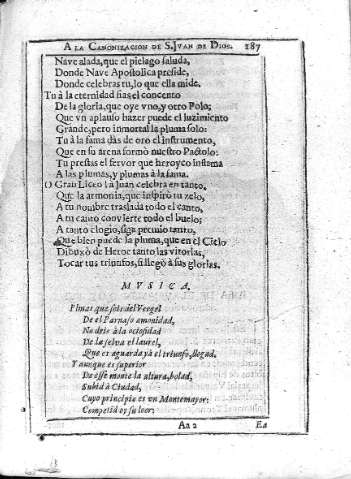 A LA CANONIZACION DE S. IVAN DE DIOS. 187
Nave alada, que el pielago saluda,
Donde Nave Apostolica preside,
Donde celebras tu, lo que ella mide.
Tu à la eternidad fias el concento
De la gloria, que oye vno, y otro Polo;
Que vn aplauso hazer puede el luzimiento
Grande, pero inmortal la pluma solo:
Tu à la fama dàs de oro el instrumento,
Que en su arena formò nuestro Pactolo:
Tu prestas el fervor que heroyco inflama
A las plumas, y plumas à la fama.
O Gran Liceo! à Iuan celebra en tanto,
Que la armonia, que inspirò tu zelo,
A tu nombre traslada todo el canto,
A tu canto convierte todo el buelo;
A tanto elogio, siga premio tanto,
Que bien puede la pluma, que en el Cielo
Dibuxò de Heroe tanto las vitorias,
Tocar tus triunfos, si llegò à sus glorias.
MVSICA.
Plmas que sois del Vergel
De el Parnaso amenidad,
No deis à la ociosidad
De la selva el laurel,
Que os aguarda yà el triunfo, llegad,
Y aunque es superior
De esse monte la altura, bolad,
Subid à Ciudad,
Cuyo principio es vn Montemayor:
Competid os su loor:
Aa 2 Ea